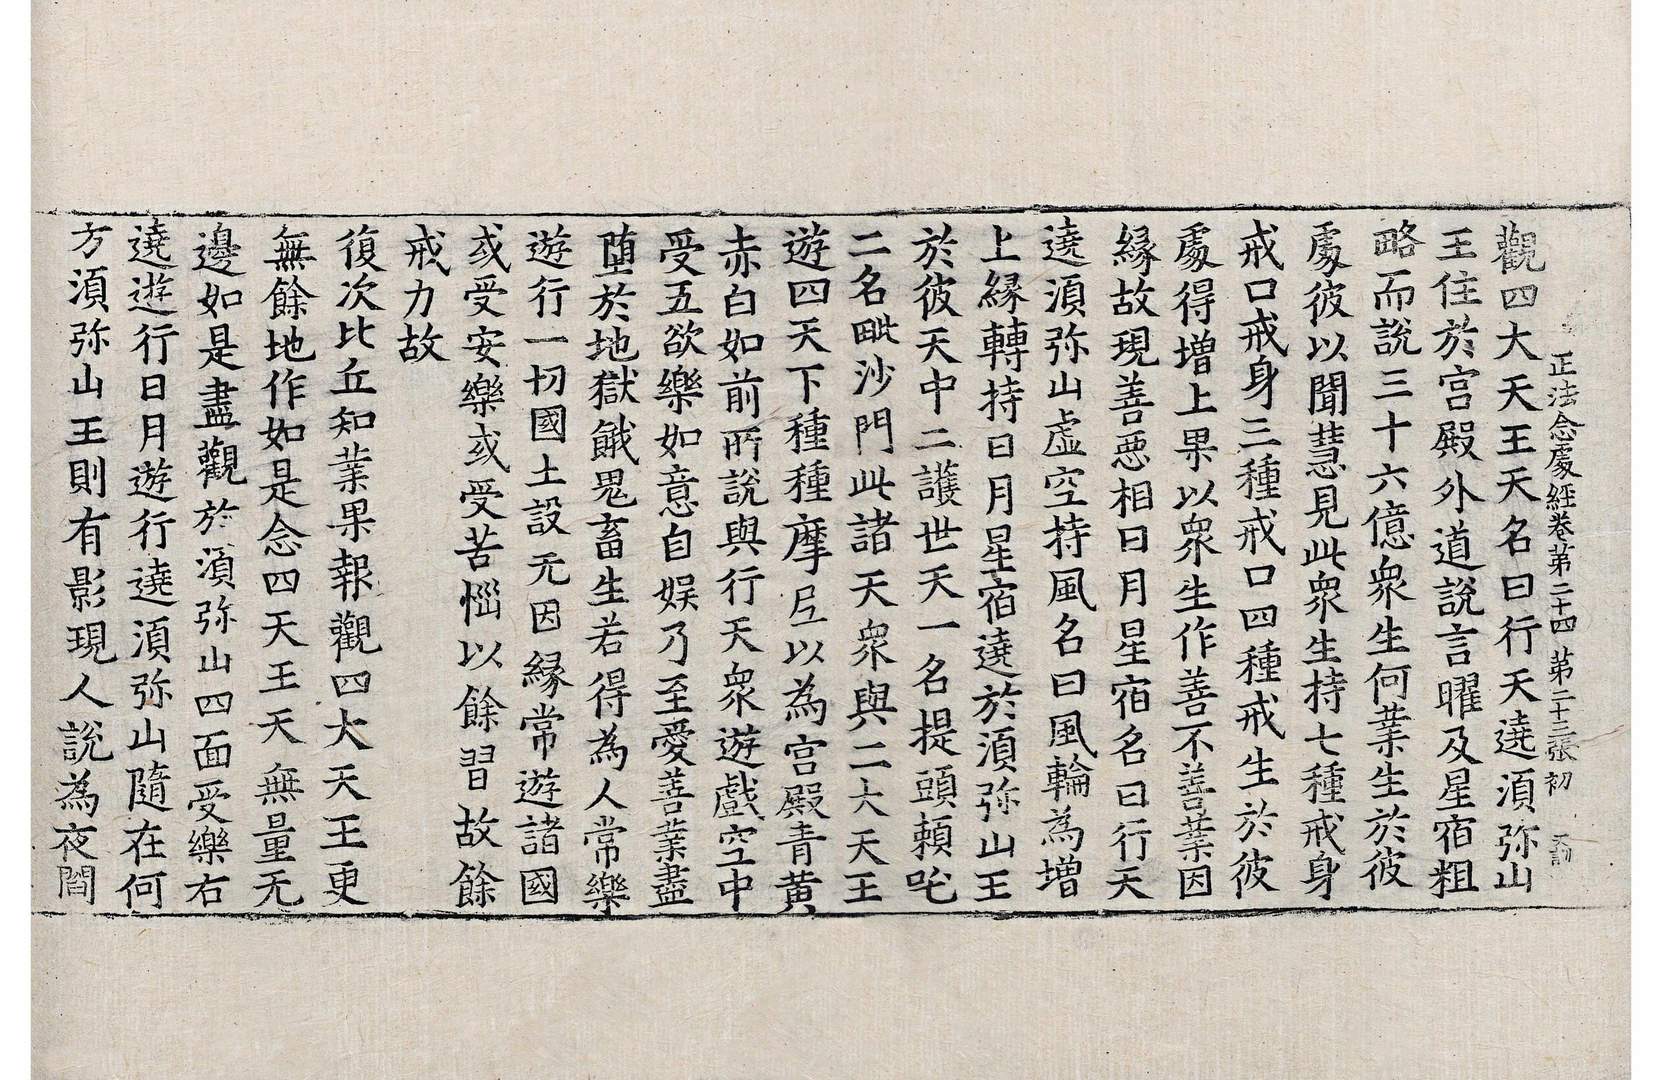 正法念處經卷第二十四 第二十三張 初
觀四大天王天名曰行天遶湏弥山
王住於宮殿外道說言曜及星宿粗
略而說三十六億衆生何業生於彼
處彼以聞慧見此衆生持七種戒身
戒口戒身三種戒口四種戒生於彼
處得增上果以衆生作善不善業因
緣故現善惡相日月星宿名曰行天
遶湏弥山虛空持風名曰風輪為增
上緣轉持日月星宿遶於湏弥山王
於彼天中二護世天一名提頭賴吒
二名毗沙門此諸天衆與二大天王
遊四天下種種摩尼以為宮殿青黃
赤白如前所說與行天衆遊戲空中
受五欲樂如意自娛乃至愛善業盡
墮於地獄餓鬼畜生若得為人常樂
遊行一切國土設无因緣常遊諸國
或受安樂或受苦惱以餘習故餘
戒力故
復次比丘知業果報觀四大天王更
無餘地作如是念四天王天無量无
邊如是盡觀於湏弥山四面受樂右
遶遊行日月遊行遶湏弥山隨在何
方湏弥山王則有影現人說為夜閻